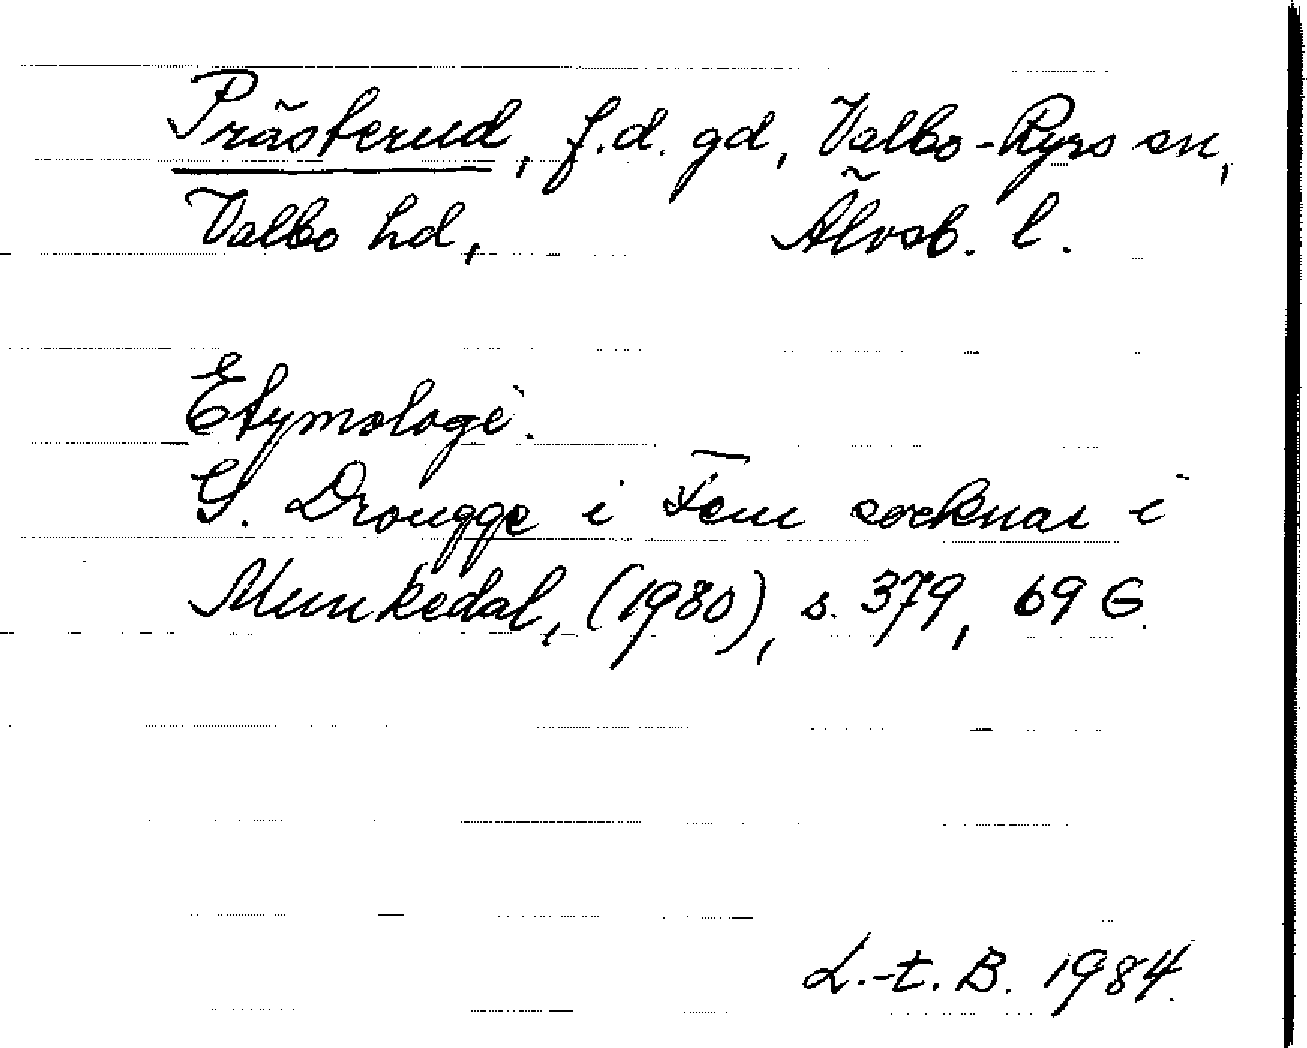 Prästerud, f.d. gd, Valbo-Ryrs sn,
Valbo hd, Älvsb. l.
Etymologi.
G. Drougge i Fem socknar i
Munkedal, (1980), s. 379, 69 G.
L.-t. B. 1984.